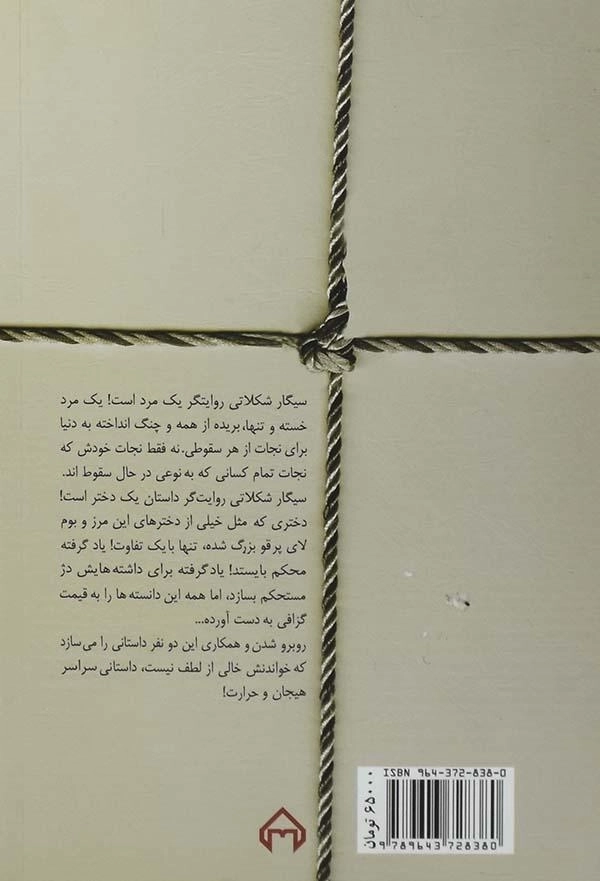 سیگار شکلاتی روایتگر یک مرد است! یک مرد
خسته و تنها، بریده از همه و چنگ انداخته به دنیا
برای نجات از هر سقوطی. نه فقط نجات خودش که
نجات تمام کسانی که به نوعی در حال سقوط اند.
سیگار شکلاتی روایت‌گر داستان یک دختر است!
دختری که مثل خیلی از دخترهای این مرز و بوم
لای پرقو بزرگ شده، تنها با یک تفاوت! یاد گرفته
محکم بایستد! یاد گرفته برای داشته هایش دژ
مستحکم بسازد، اما همه این دانسته ها را به قیمت
گزافی به دست آورده...
روبرو شدن و همکاری این دو نفر داستانی را می سازد
که خواندنش خالی از لطف نیست، داستانی سراسر
هیجان و حرارت!
ISBN 964-372-838-0
۶۵۰۰۰ تومان
9 789643 728380